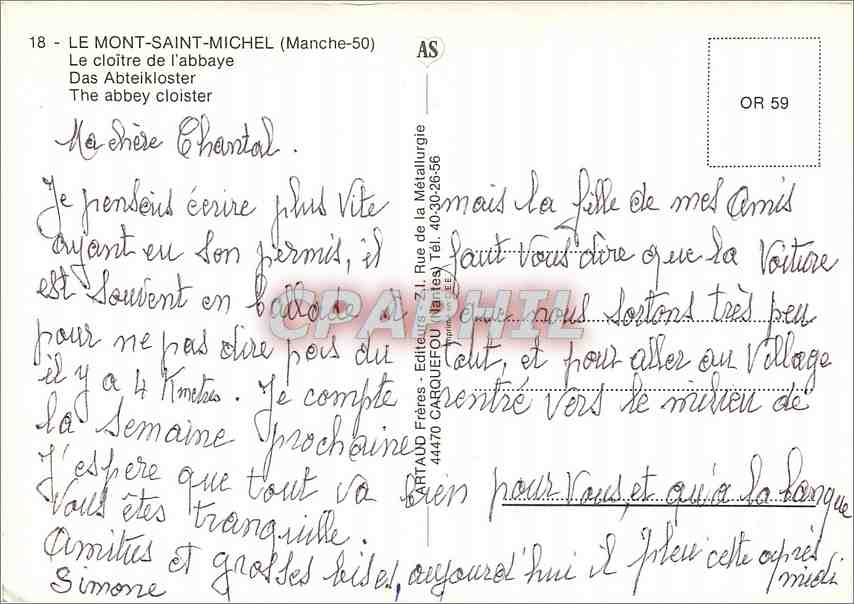 18 - LE MONT-SAINT-MICHEL (Manche-50)
Le cloître de l'abbaye
Das Abteikloster
The abbey cloister
AS
OR 59
ARTAUD Frères - Editeurs - Z.I. Rue de la Métallurgie
44470 CARQUEFOU (Nantes) Tél. 40-30-26-56
CPAPHIL
Ma chère Chantal.
Je pensais écrire plus vite mais la fille de mes amis
ayant eu son permis, il faut vous dire que la voiture
est souvent en ballade et que nous sortons très peu
pour ne pas dire pas du tout, et pour aller au village
il y a 4 Kmetres. Je compte rentré vers le milieu de
la semaine prochaine
J'espere que tout va bien pour vous, et qu'à la banque
vous êtes tranquille.
Amitiés et grosses bises, aujourd'hui il pleu cette après
Simone midi